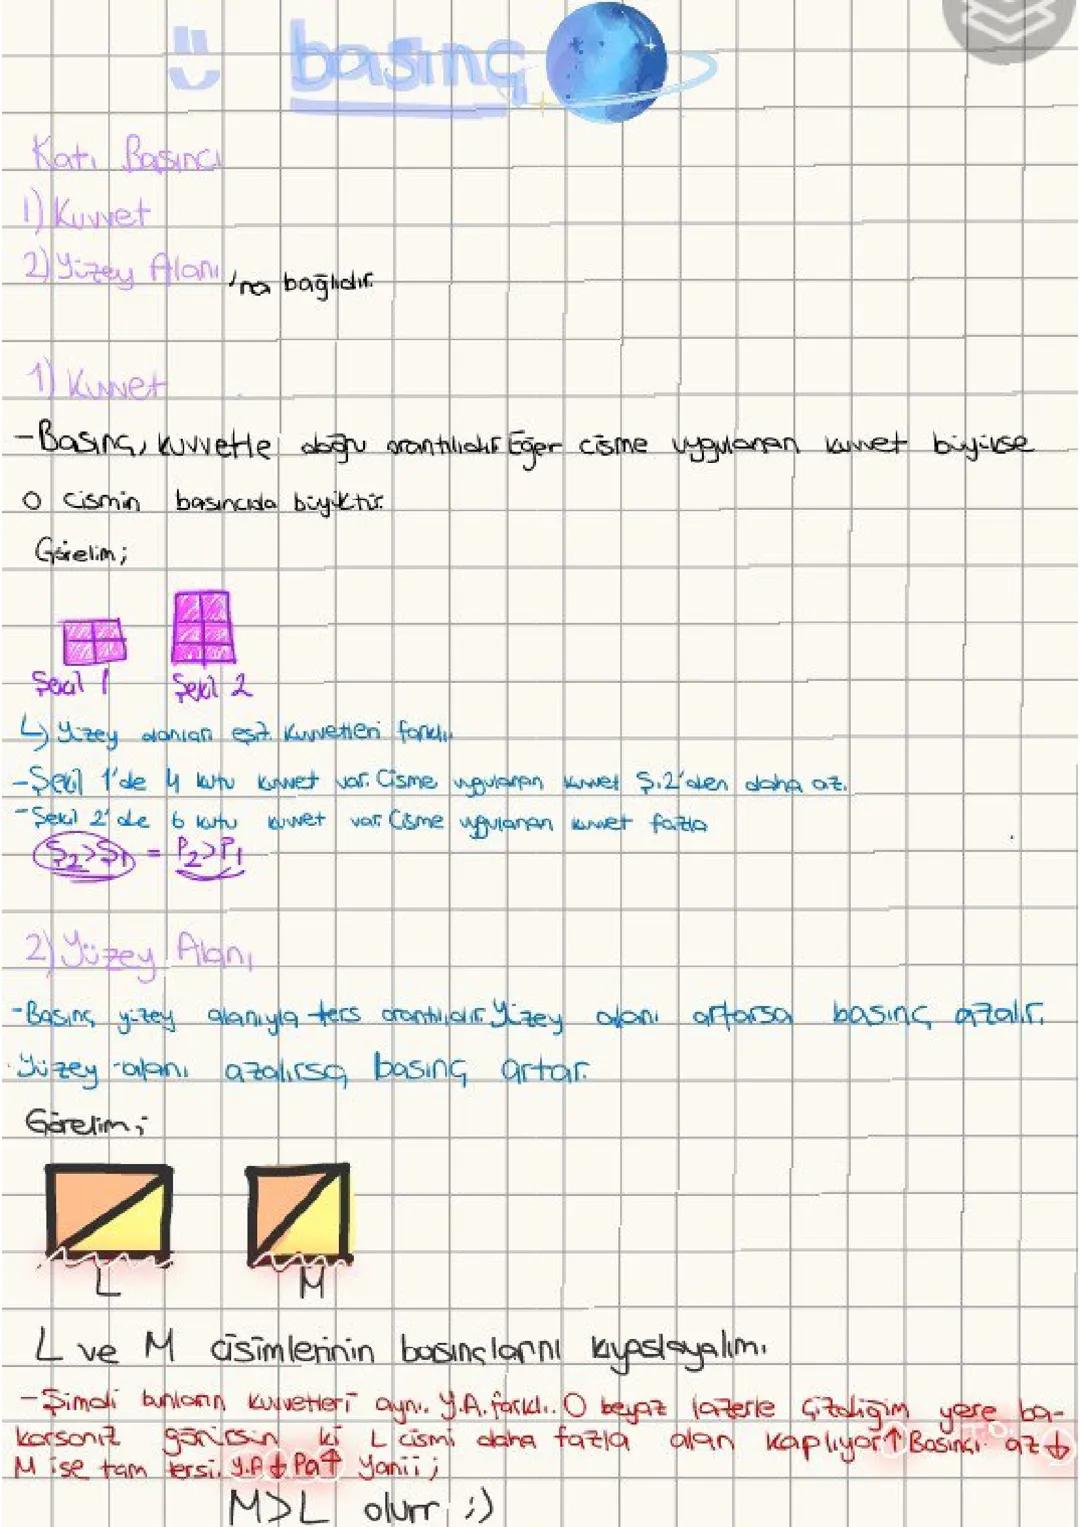 basınç
Katı Basıncı
1) Kuvvet
2) Yüzey Alanı 'na bağlıdır.
1) Kuvvet
-Basınç, kuvvetle doğru orantılıdır. Eğer cisme uygulanan kuvvet büyükse
o cismin basıncıda büyüktür.
Görelim;
Şekil 1 Şekil 2
↳ Yüzey alanları eşit. Kuvvetleri farklı.
-Şekil 1'de 4 kutu kuvvet var. Cisme uygulanan kuvvet Ş.2'den daha az.
-Şekil 2'de 6 kutu kuvvet var. Cisme uygulanan kuvvet fazla
Ş2>Ş1 = P2>P1
2) Yüzey Alanı
-Basınç yüzey alanıyla ters orantılıdır. Yüzey alanı artarsa basınç azalır.
Yüzey alanı azalırsa, basınç artar.
Görelim;
L M
L ve M cisimlerinin basınçlarını kıyaslayalım.
-Şimdi bunların kuvvetleri aynı. Y.A. farklı. O beyaz lazerle çizdiğim yere ba-
karsanız görürsün ki L cismi daha fazla alan kaplıyor↑ Basıncı az↓
M ise tam tersi. Y.A↓ Pa↑ Yanii;
M>L olurr ;)